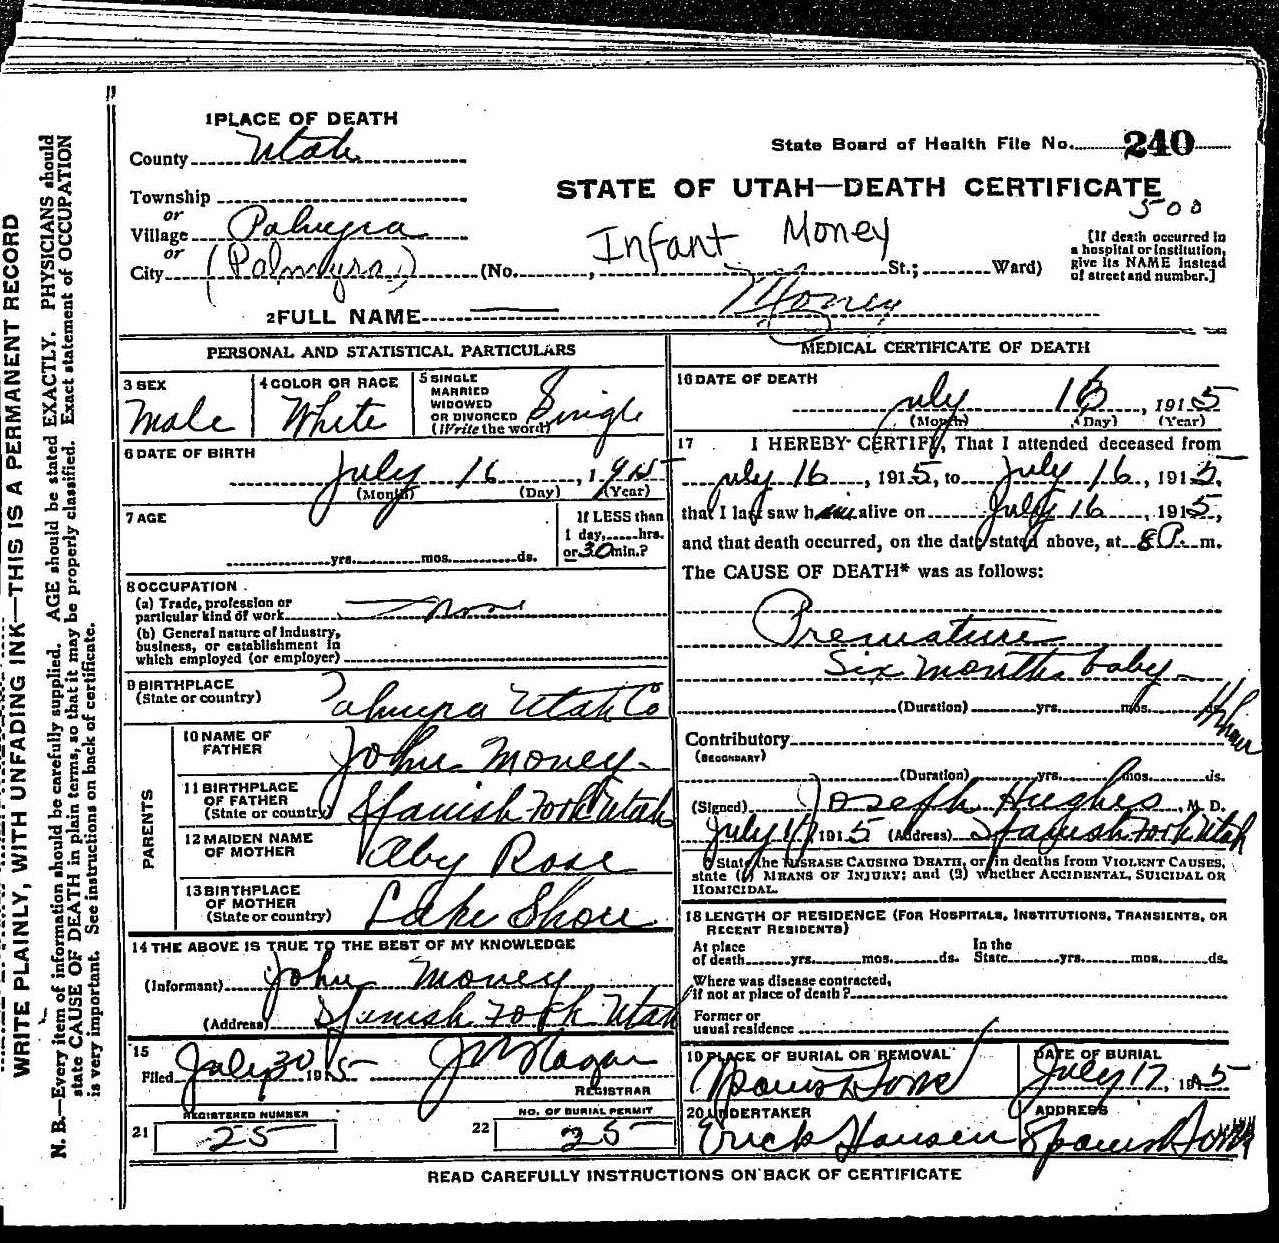 1 PLACE OF DEATH
County Utah
State Board of Health File No. 240
STATE OF UTAH—DEATH CERTIFICATE
500
Township
or
Village Palmyra
or
City (Palmyra) (No. , St.; Ward)
Infant Money
[If death occurred in
a hospital or institution,
give its NAME instead
of street and number.]
2 FULL NAME — Money
PERSONAL AND STATISTICAL PARTICULARS
3 SEX
Male
4 COLOR OR RACE
White
5 SINGLE
MARRIED
WIDOWED
OR DIVORCED
(Write the word)
Single
6 DATE OF BIRTH
July 16, 1915
(Month) (Day) (Year)
7 AGE
yrs. mos. ds.
If LESS than
1 day, hrs.
or 30 min.?
8 OCCUPATION
(a) Trade, profession or
particular kind of work None
(b) General nature of Industry,
business, or establishment in
which employed (or employer)
9 BIRTHPLACE
(State or country)
Palmyra Utah Co
PARENTS
10 NAME OF
FATHER
John Money
11 BIRTHPLACE
OF FATHER
(State or country)
Spanish Fork Utah
12 MAIDEN NAME
OF MOTHER
Aby Rose
13 BIRTHPLACE
OF MOTHER
(State or country)
Lake Shore
14 THE ABOVE IS TRUE TO THE BEST OF MY KNOWLEDGE
(Informant) John Money
(Address) Spanish Fork Utah
15
Filed July 30 1915
REGISTRAR
REGISTERED NUMBER
21 25
NO. OF BURIAL PERMIT
22 25
MEDICAL CERTIFICATE OF DEATH
16 DATE OF DEATH
July 16, 1915
(Month) (Day) (Year)
17 I HEREBY CERTIFY, That I attended deceased from
July 16, 1915, to July 16, 1915,
that I last saw him alive on July 16, 1915,
and that death occurred, on the date stated above, at 8 P. m.
The CAUSE OF DEATH* was as follows:
Premature
Six months baby
(Duration) yrs. mos. ds.
Contributory
(SECONDARY)
(Duration) yrs. mos. ds.
(Signed) Joseph Hughes, M. D.
July 1915 (Address) Spanish Fork Utah
* State the DISEASE CAUSING DEATH, or, in deaths from VIOLENT CAUSES,
state (1) MEANS OF INJURY; and (2) whether ACCIDENTAL, SUICIDAL OR
HOMICIDAL.
18 LENGTH OF RESIDENCE (FOR HOSPITALS, INSTITUTIONS, TRANSIENTS, OR
RECENT RESIDENTS)
At place
of death yrs. mos. ds.
In the
State yrs. mos. ds.
Where was disease contracted,
if not at place of death?
Former or
usual residence
19 PLACE OF BURIAL OR REMOVAL
Spanish Fork
DATE OF BURIAL
July 17, 1915
20 UNDERTAKER
Erick Hansen
ADDRESS
Spanish Fork
READ CAREFULLY INSTRUCTIONS ON BACK OF CERTIFICATE
WRITE PLAINLY, WITH UNFADING INK—THIS IS A PERMANENT RECORD
N. B.—Every item of information should be carefully supplied. AGE should be stated EXACTLY. PHYSICIANS should
state CAUSE OF DEATH in plain terms, so that it may be properly classified. Exact statement of OCCUPATION
is very important. See instructions on back of certificate.